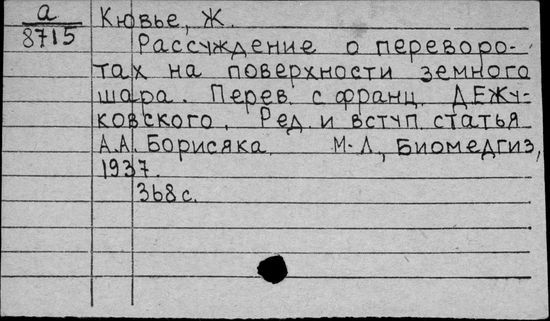 а
8715
Кювье, Ж.
Рассуждение о переворо-
тах на поверхности земного
шара. Перев. с франц. Д.Е.Жу-
ковского. Ред. и вступ. статья
А.А. Борисяка. М.-Л., Биомедгиз,
1937.
368 с.